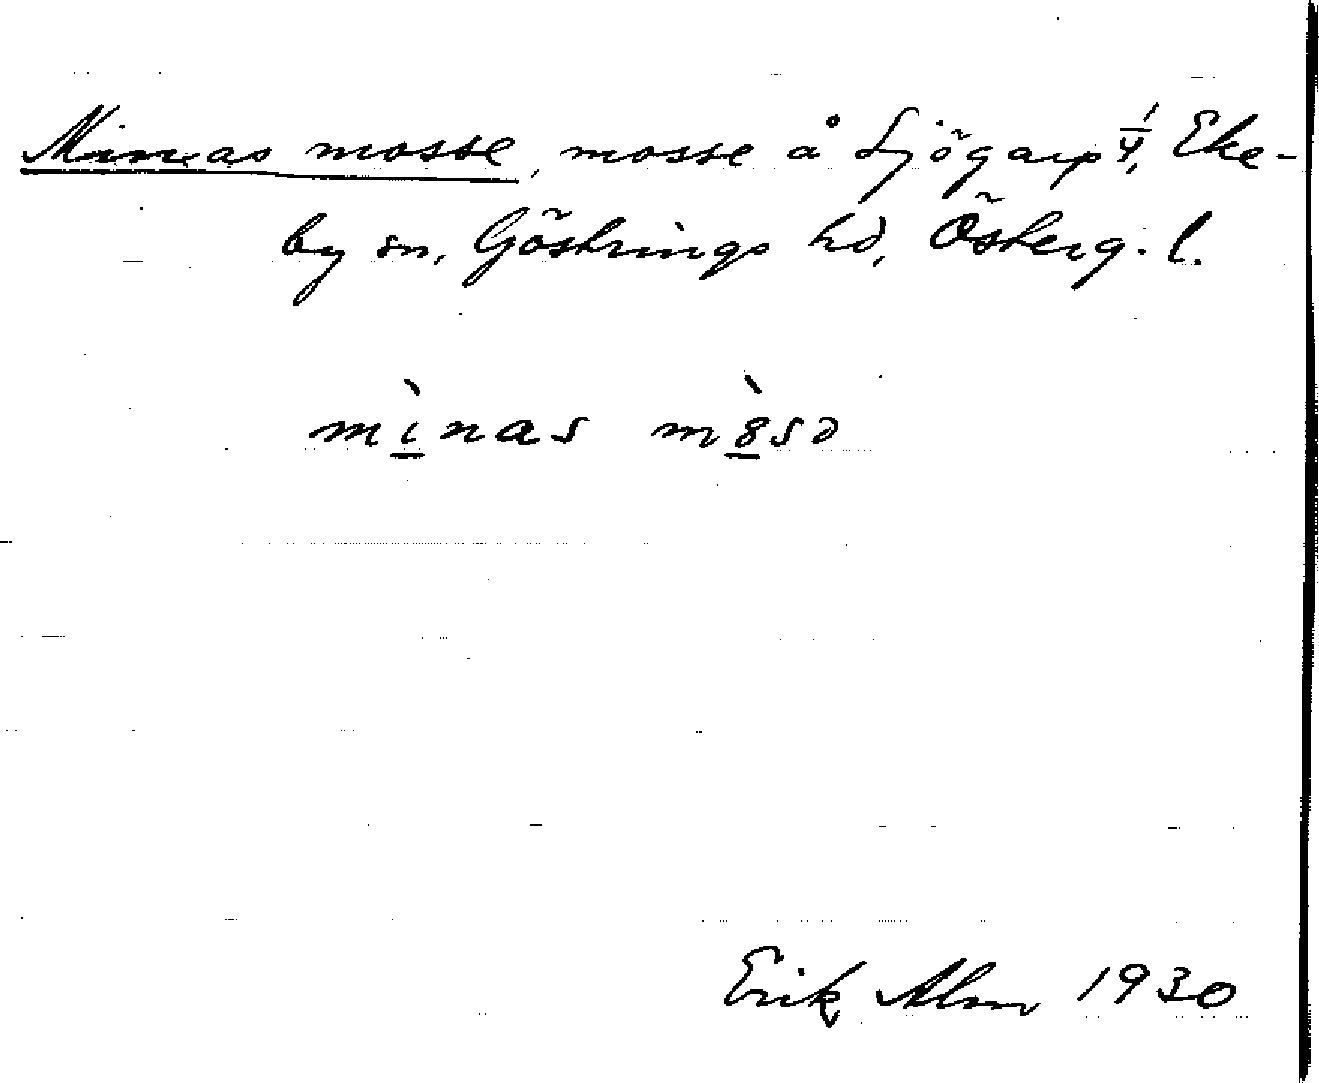 Minas mosse, mosse å Sjögarp 1/4, Eke-
by sn, Göstrings hd, Österg. l.
mìnas mòsə
Erik Alm 1930